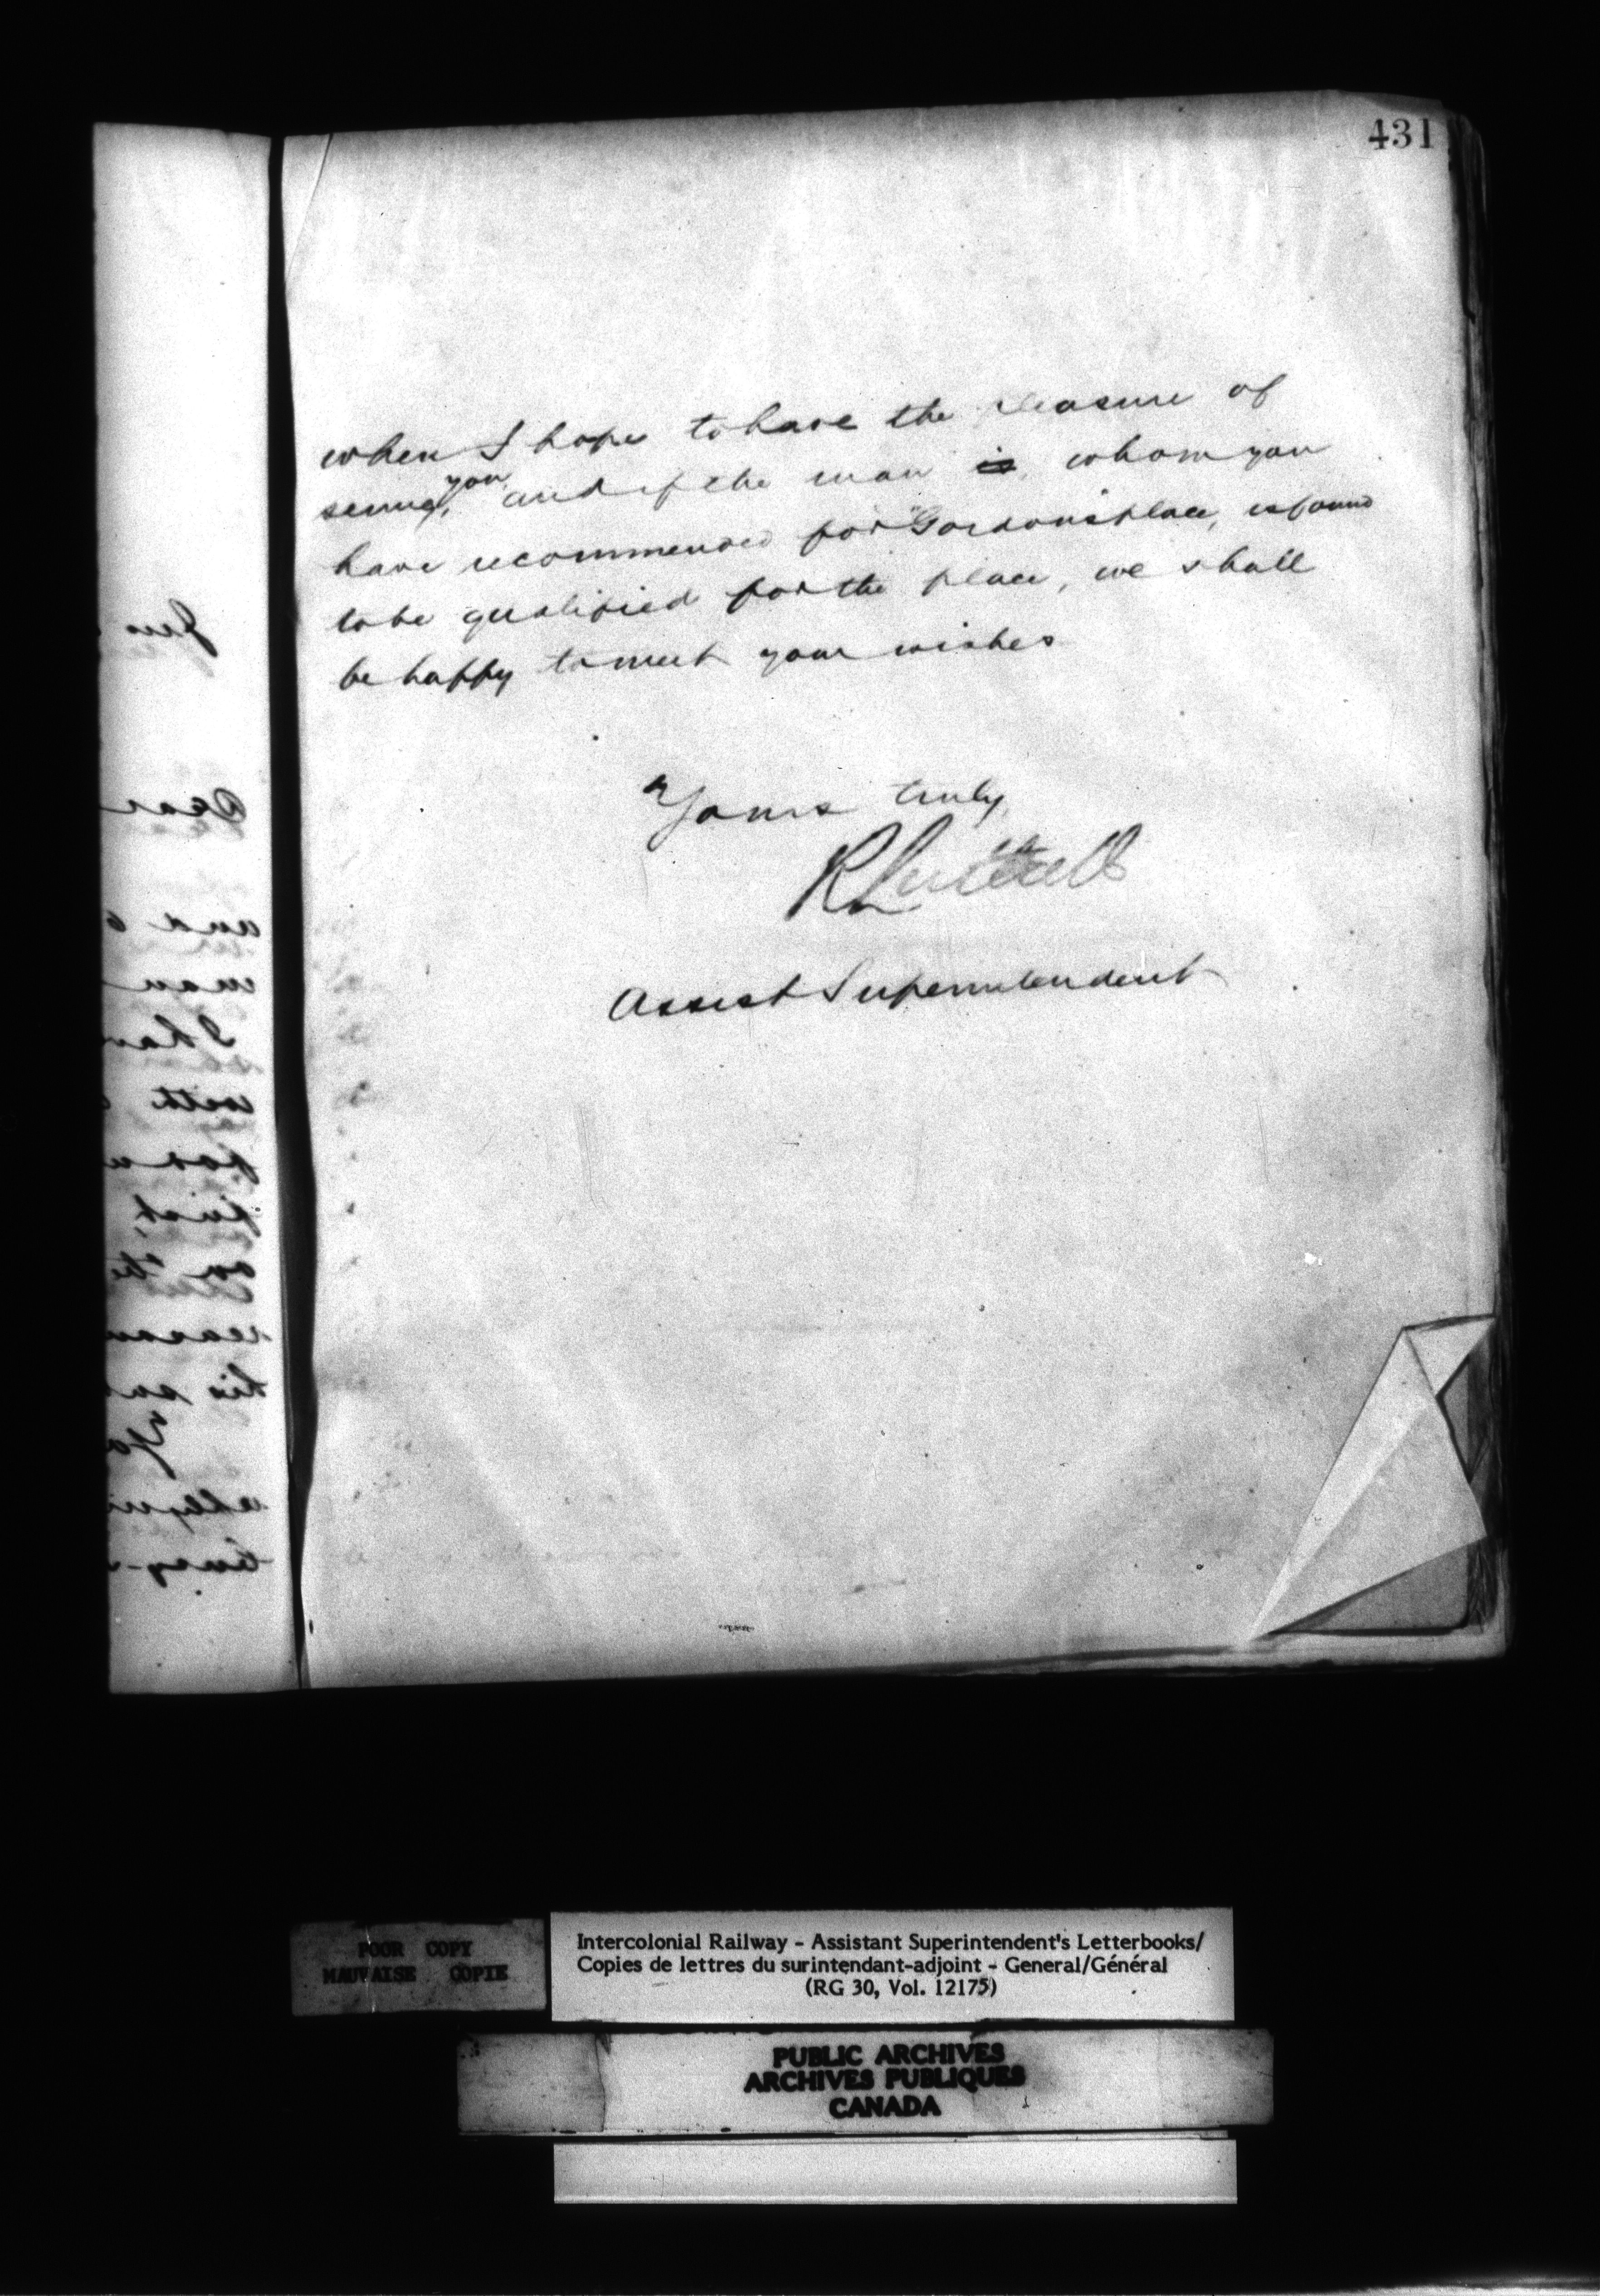 431
when I hope to have the pleasure of
seeing you, and if the man is whom you
have recommended for Gordons place, is found
to be qualified for the place, we shall
be happy to meet your wishes
Yours truly,
R Luttrell
Assist Superintendent
Jno
Dear
and
man
I hav
with
for a
first,
on the
reason
his
Yo
POOR COPY
MAUVAISE COPIE
Intercolonial Railway - Assistant Superintendent's Letterbooks/
Copies de lettres du surintendant-adjoint - General/Général
(RG 30, Vol. 12175)
PUBLIC ARCHIVES
ARCHIVES PUBLIQUES
CANADA